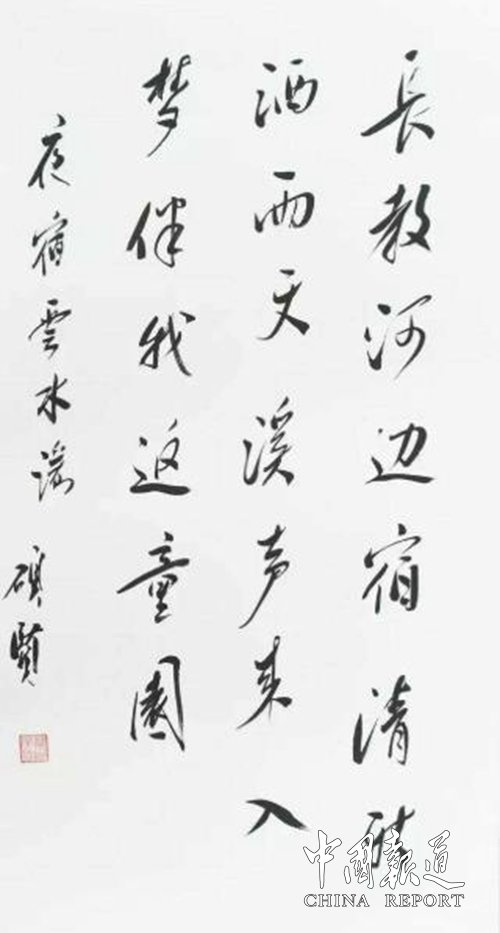 長教河边宿清
洒雨天溪声来入
梦伴我返童園
夜宿雲水謡 碩賢
中国報道
CHINA REPORT